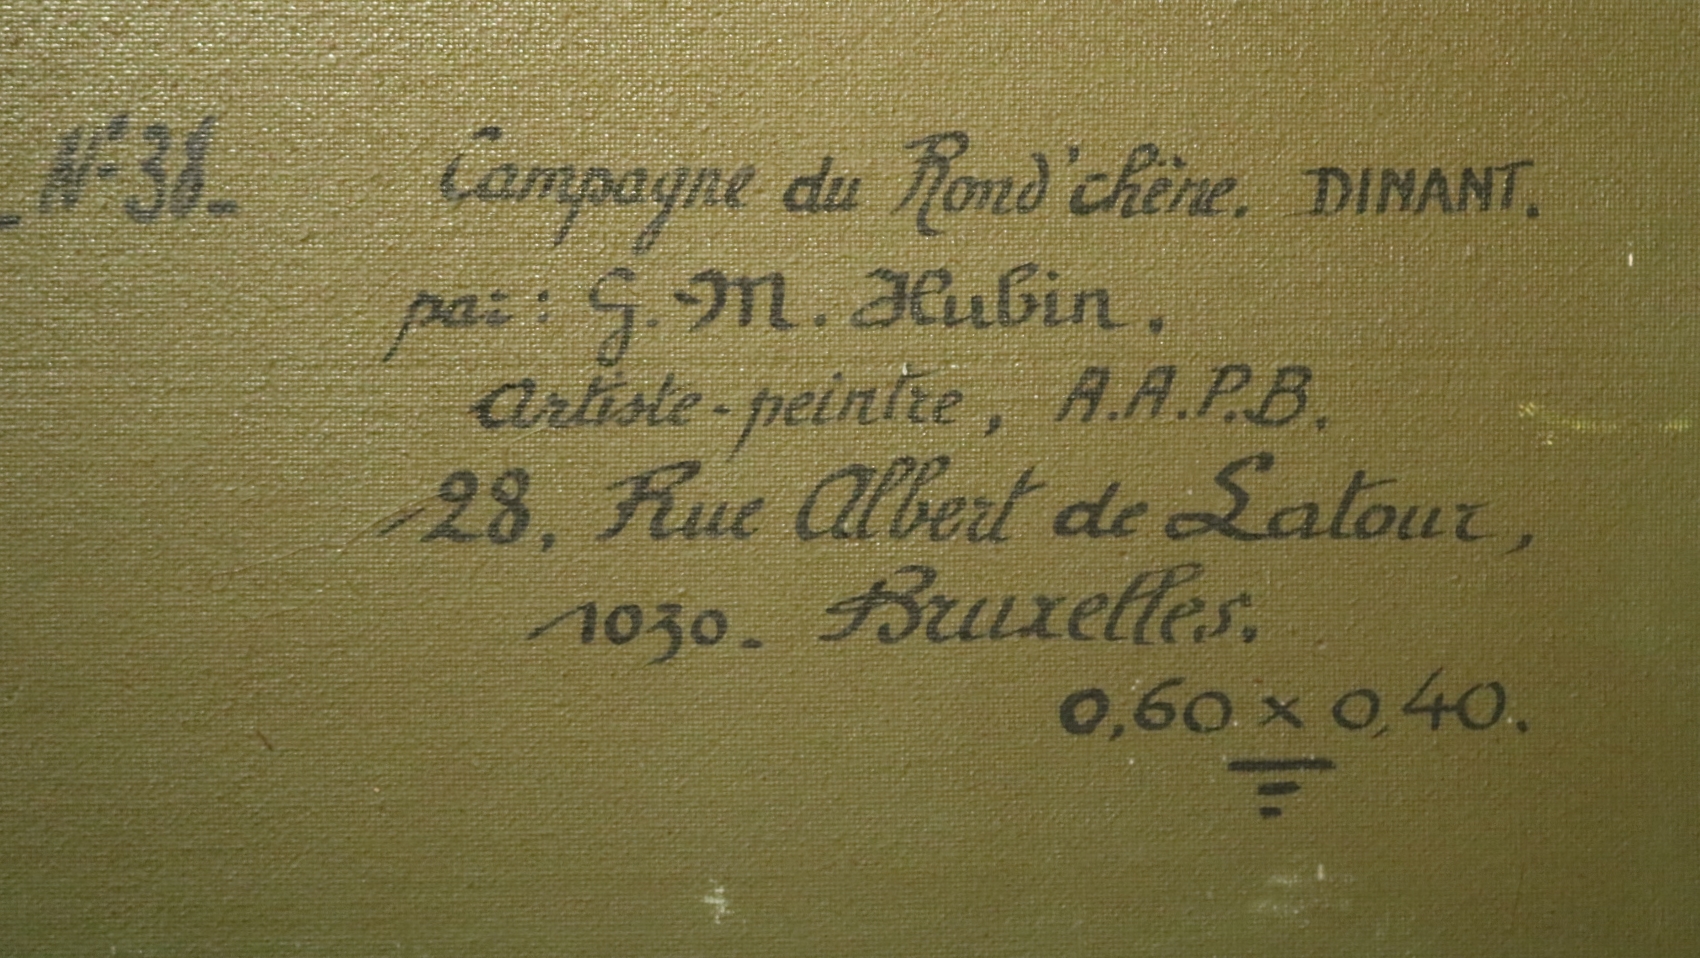 _ N° 38 _ Campagne du Rond'chêne. DINANT.
par : G.-M. Hubin.
Artiste-peintre, A.A.P.B.
28, Rue Albert de Latour,
1030. Bruxelles.
0,60 x 0,40.